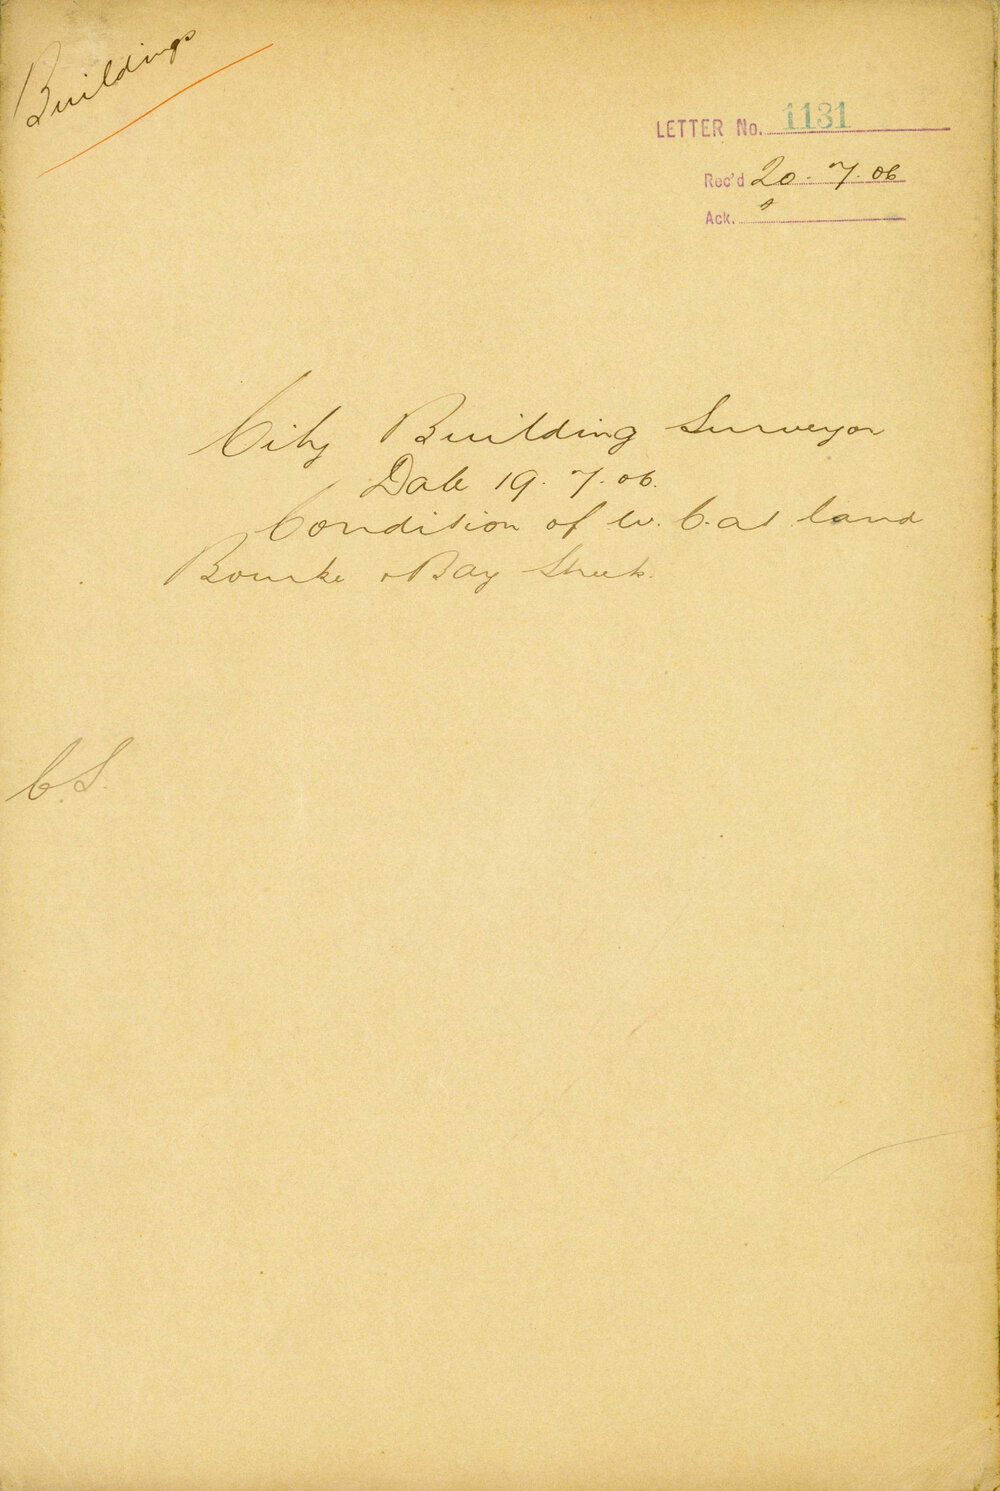 Buildings
LETTER No. 1131
Rec'd 20. 7. 06
Ack.
City Building Surveyor
Date 19. 7. 06.
Condition of W. C. at land
Bourke & Bay Streets.
C.S.